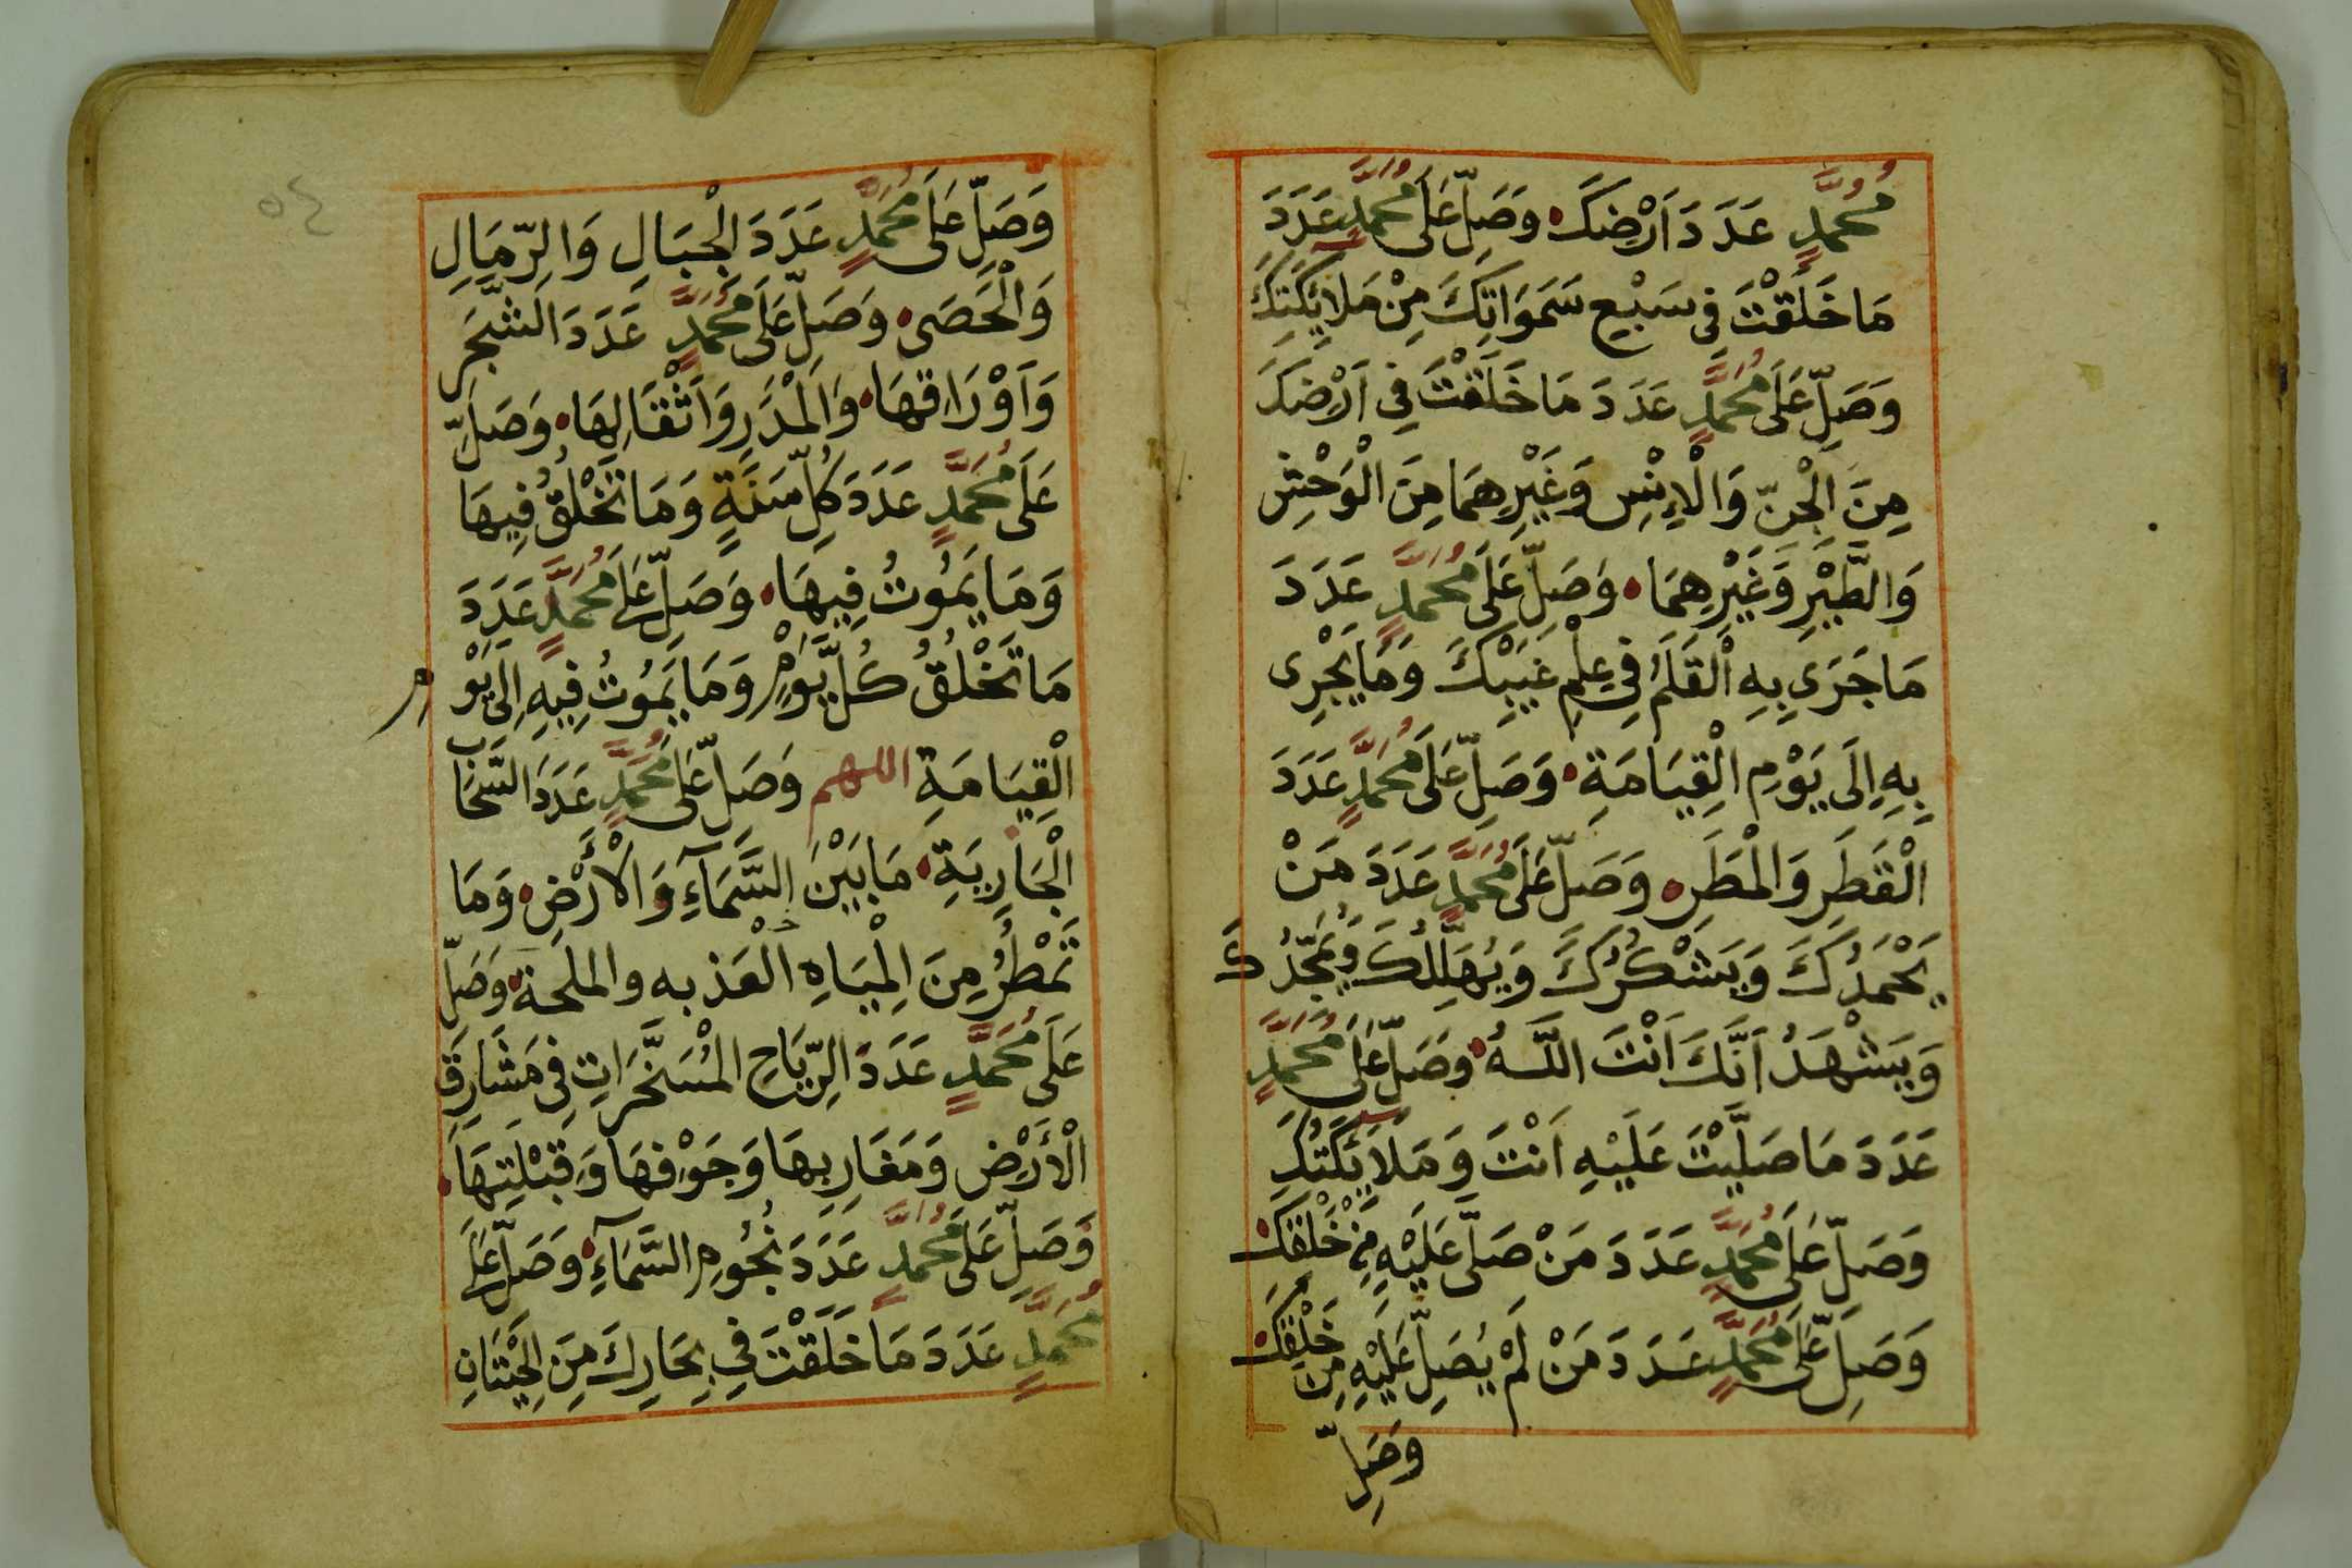 مُحَمَّدٍ عَدَدَ اَرْضِكَ وَصَلِّ عَلَى مُحَمَّدٍ عَدَدَ
مَا خَلَقْتَ فِى سَبْعِ سَمَوَاتِكَ مِنْ مَلَايِٕكَتِكَ
وَصَلِّ عَلَى مُحَمَّدٍ عَدَدَ مَا خَلَقْتَ فِى اَرْضِكَ
مِنَ الْجِنِّ وَالْاِنْسِ وَغَيْرِهِمَا مِنَ الْوَحْشِ
وَالطَّيْرِ وَغَيْرِهِمَا وَصَلِّ عَلَى مُحَمَّدٍ عَدَدَ
مَا جَرَى بِهِ الْقَلَمُ فِى عِلْمِ غَيْبِكَ وَمَا يَجْرِى
بِهِ اِلَى يَوْمِ الْقِيَامَةِ وَصَلِّ عَلَى مُحَمَّدٍ عَدَدَ
الْقَطَرِ وَالْمَطَرِ وَصَلِّ عَلَى مُحَمَّدٍ عَدَدَ مَنْ
يَحْمَدُكَ وَيَشْكُرُكَ وَيُهَلِّلُكَ وَيُمَجِّدُكَ
وَيَشْهَدُ اَنَّكَ اَنْتَ اللَّهُ وَصَلِّ عَلَى مُحَمَّدٍ
عَدَدَ مَا صَلَّيْتَ عَلَيْهِ اَنْتَ وَمَلَايِٕكَتُكَ
وَصَلِّ عَلَى مُحَمَّدٍ عَدَدَ مَنْ صَلَّى عَلَيْهِ مِنْ خَلْقِكَ
وَصَلِّ عَلَى مُحَمَّدٍ عَدَدَ مَنْ لَمْ يُصَلِّ عَلَيْهِ مِنْ خَلْقِكَ
وَصَلِّ
٥٤
وَصَلِّ عَلَى مُحَمَّدٍ عَدَدَ الْجِبَالِ وَالرِّمَالِ
وَالْحَصَى وَصَلِّ عَلَى مُحَمَّدٍ عَدَدَ الشَّجَرِ
وَاَوْرَاقِهَا وَالْمَدَرِ وَاَثْقَالِهَا وَصَلِّ
عَلَى مُحَمَّدٍ عَدَدَ كُلِّ سَنَةٍ وَمَا تَخْلُقُ فِيهَا
وَمَا يَمُوتُ فِيهَا وَصَلِّ عَلَى مُحَمَّدٍ عَدَدَ
مَا تَخْلُقُ كُلَّ يَوْمٍ وَمَا يَمُوتُ فِيهِ اِلَى يَوْمِ
الْقِيَامَةِ اللهم وَصَلِّ عَلَى مُحَمَّدٍ عَدَدَ السَّحَابِ
الْجَارِيَةِ مَا بَيْنَ السَّمَآءِ وَالْأَرْضِ وَمَا
تَمْطُرُ مِنَ الْمِيَاهِ الْعَذبه والملحة وَصَلِّ
عَلَى مُحَمَّدٍ عَدَدَ الرِّيَاحِ الْمُسَخَّرَاتِ فِى مَشَارِقِ
الْأَرْضِ وَمَغَارِبِهَا وَجَوْفِهَا وَقِبْلَتِهَا
وَصَلِّ عَلَى مُحَمَّدٍ عَدَدَ نُجُومِ السَّمَآءِ وَصَلِّ عَلَى
مُحَمَّدٍ عَدَدَ مَا خَلَقْتَ فِى بِحَارِكَ مِنَ الْحِيْتَانِ